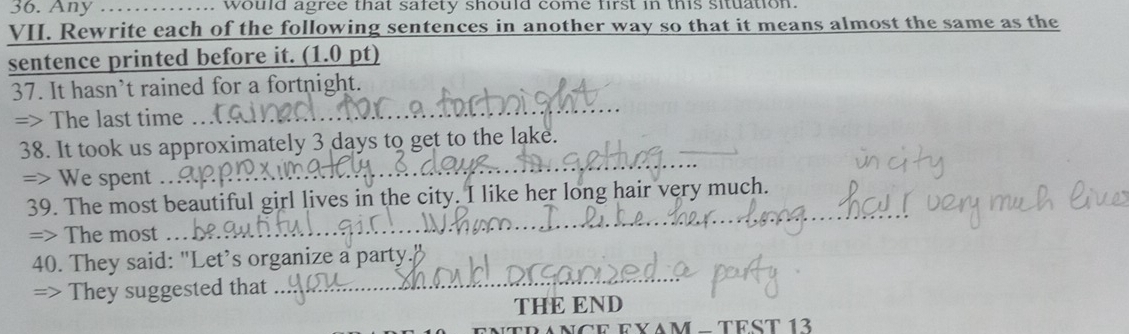 36. Any .............. would agree that safety should come first in this situation.
VII. Rewrite each of the following sentences in another way so that it means almost the same as the
sentence printed before it. (1.0 pt)
37. It hasn't rained for a fortnight.
=> The last time ... rained for a fortnight
38. It took us approximately 3 days to get to the lake.
=> We spent ... approximately 3 days to getting
39. The most beautiful girl lives in the city. I like her long hair very much.
=> The most ... beautiful girl Whom I like her long hair very much lives
in city
40. They said: "Let's organize a party."
=> They suggested that ... you should organized a party.
THE END
ENTRANCE EXAM – TEST 13